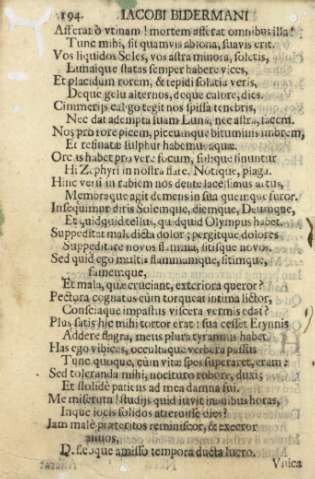 194. IACOBI BIDERMANI
Afferat ô vtinam! mortem afferat omnibus illa!
Tunc mihi, sit quamvis abiona, suavis erit.
Vos liquidos Soles, vos astra minora, soletis,
Lunaique statas semper habere vices,
Et placidum rorem, & tepidi solatia veris,
Deque gelu alternos, deque calore, dies.
Cimmerijs caligo tegit nos spissa tenebris,
Nec dat adempta suam Luna, nec astra, facem.
Nos pro rore picem, piceumque bituminis imbrem,
Et resinatæ sulphur habemus aquæ.
Orcus habet pro vere focum, solique sinuntur
Hi Zephyri in nostra stare, Notique, plaga.
Hinc versi in rabiem nos dente lacessimus artus,
Memoraque agit demens in sua quemque furor.
Insequimur diris Solemque, diemque, Deumque,
Et quidquid tellus, quidquid Olympus habet.
Suppeditat maledicta dolor; pergitque dolores
Suppeditare novos flamma, sitisque novos.
Sed quid ego multa flammamque, sitimque,
famemque,
Et mala, quæ cruciant, exteriora queror?
Pectora cognatus cùm torqueat intima lictor,
Consciaque impastus viscera vermis edat?
Plus satis hic mihi tortor erat: sua cesset Erynnis
Addere flagra, meus plura tyrannus habet.
Has ego vibices, occultaque verbera passus
Tunc quoque, cùm vitæ spes superaret, eram:
Sed toleranda mihi, nocituro robore, duxi;
Et stolidè patiens ad mea damna fui.
Me miserum! studijs quid iuvit inanibus horas,
Inque iocis solidos atterusse dies?
Iam malè præteritos reminiscor, & execror
annos,
Deque amisso tempora ducta lucro.
Vnica